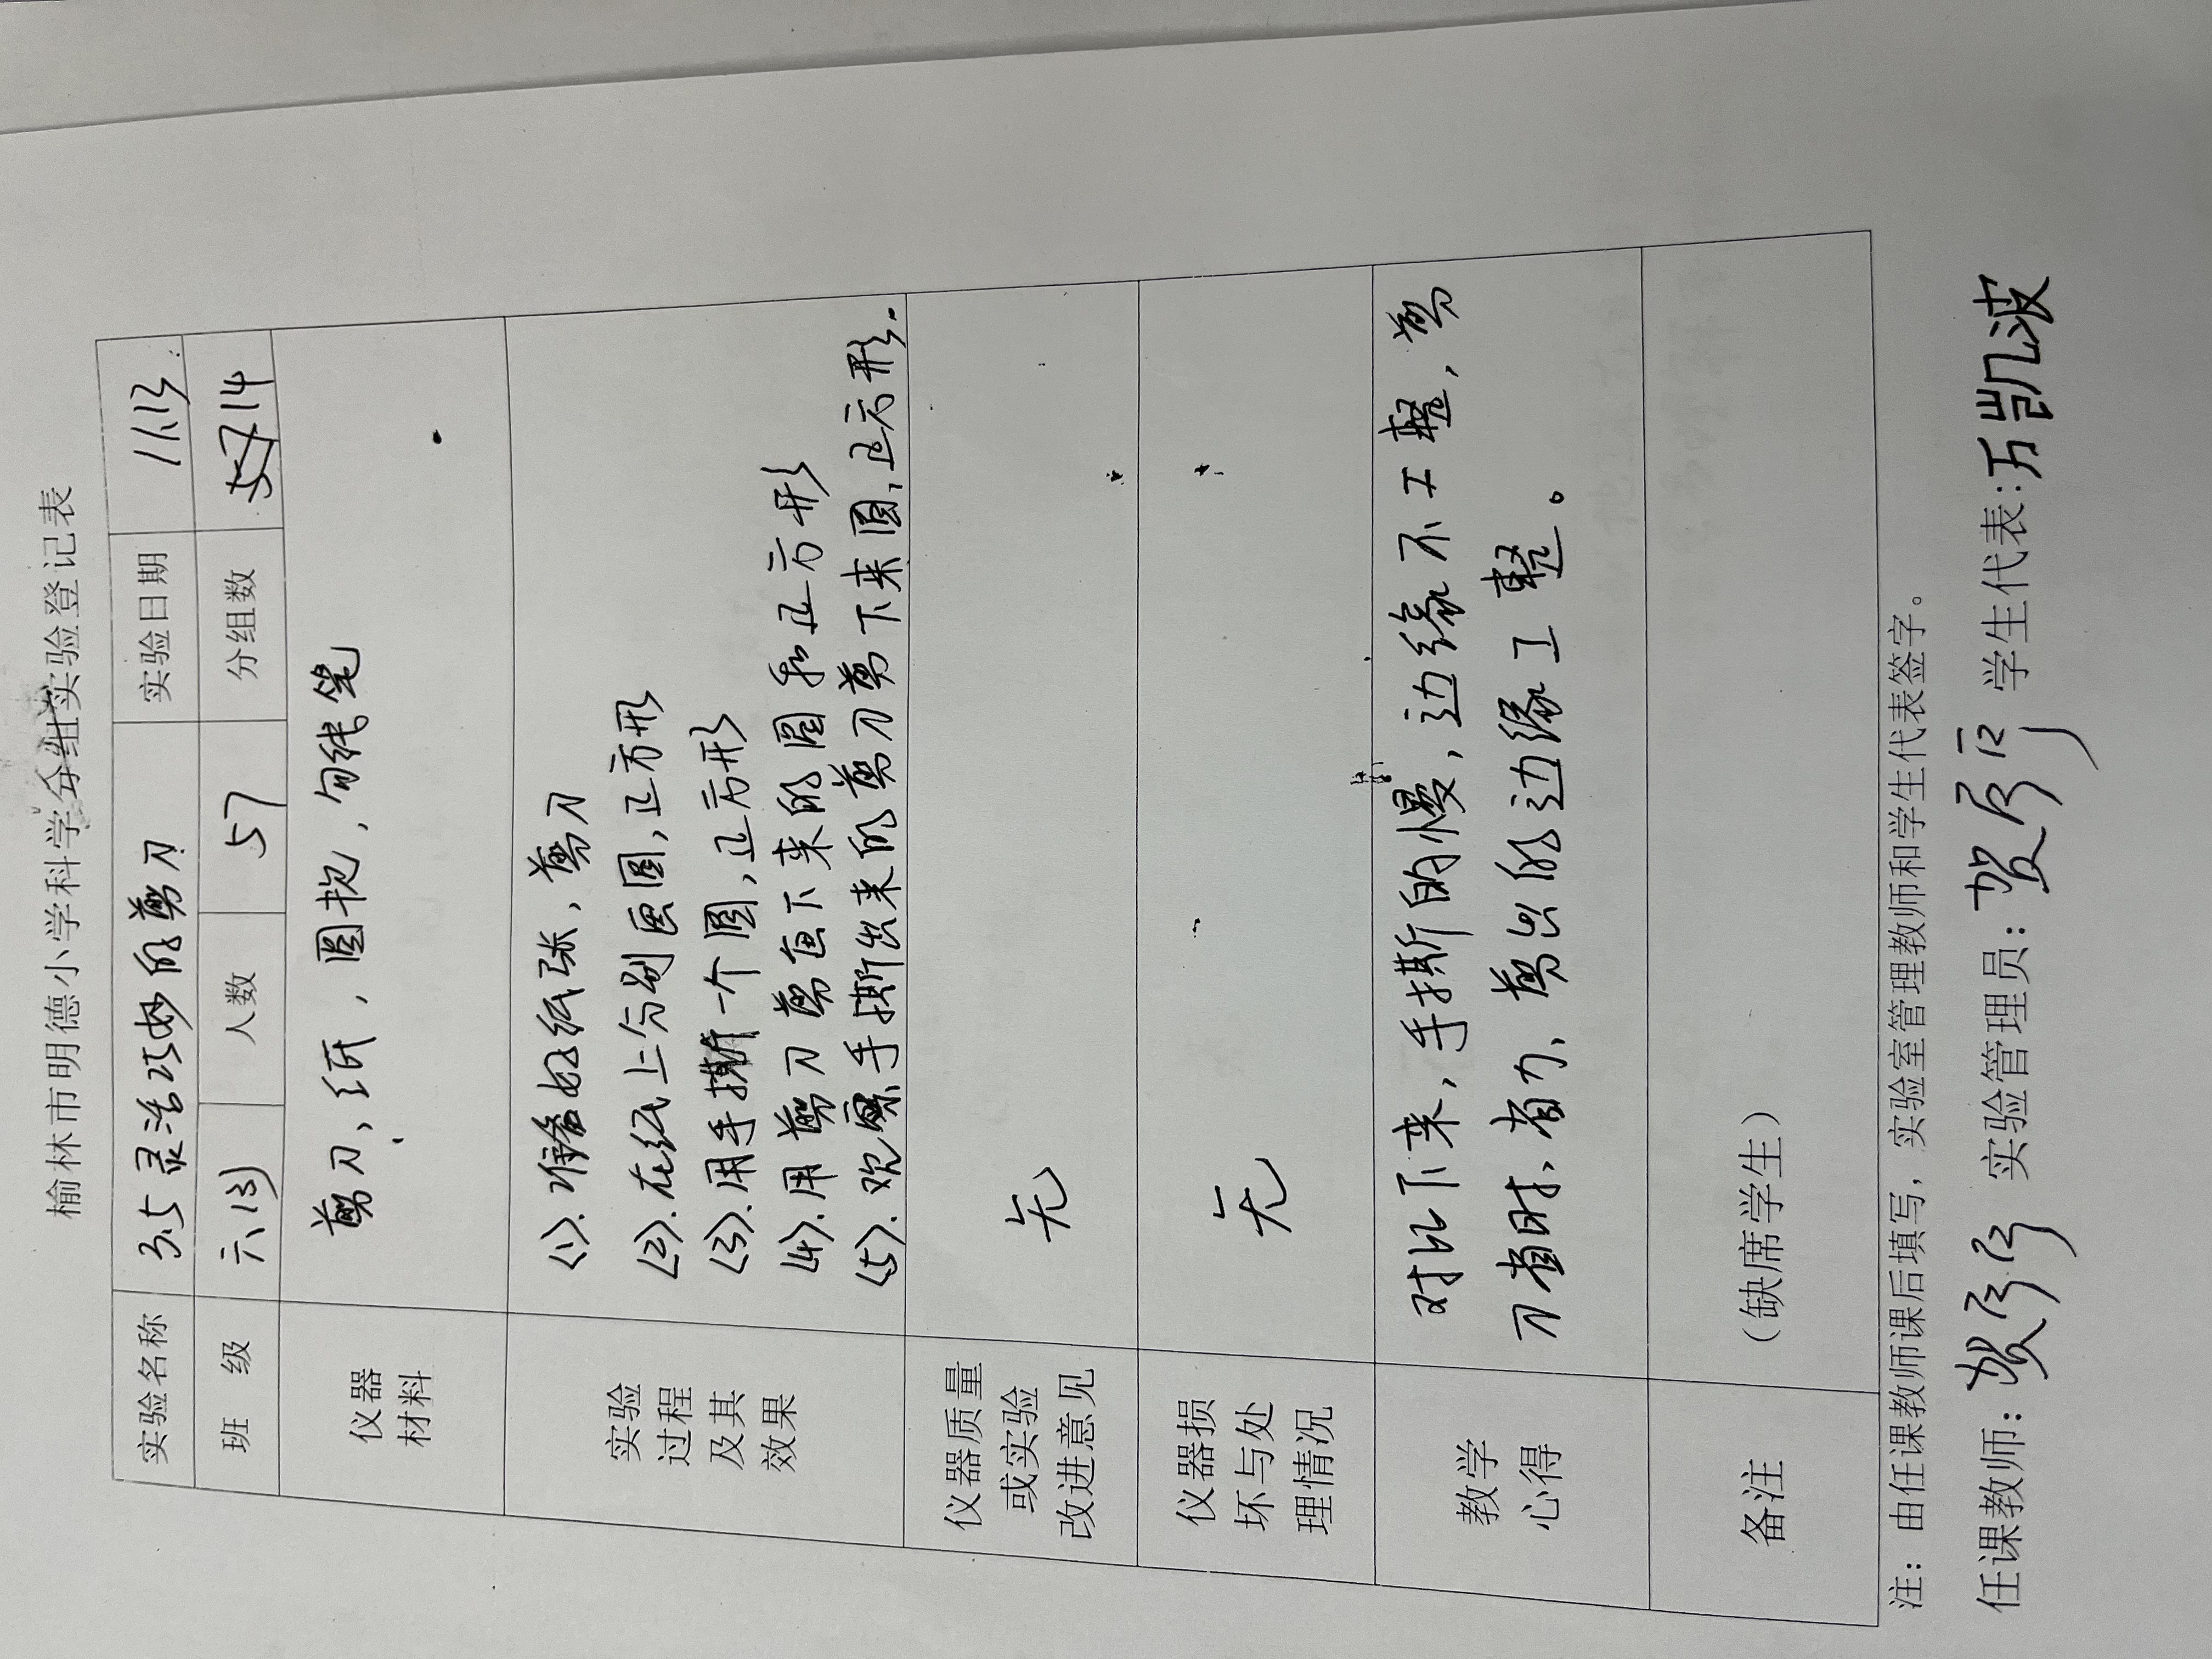 榆林市明德小学科学分组实验登记表
实验名称 3.5 灵活巧妙的剪刀 实验日期 11.13
班 级 六(3) 人数 57 分组数 14
仪器材料 剪刀、纸、圆规、勾线笔
实验过程及其效果
<1>.准备好纸张、剪刀
<2>.在纸上分别画圆,正方形
<3>.用手撕一个圆,正方形
<4>.用剪刀剪画下来的圆和正方形
<5>.观察手撕出来的剪刀剪下来圆,正方形.
仪器质量或实验改进意见 无
仪器损坏与处理情况 无
教学心得
对比下来,手撕的慢,边缘不工整,剪
刀省时、省力、剪出的边缘工整。
备注 (缺席学生)
注:由任课教师课后填写,实验室管理教师和学生代表签字。
任课教师: 实验管理员: 学生代表:万凯波